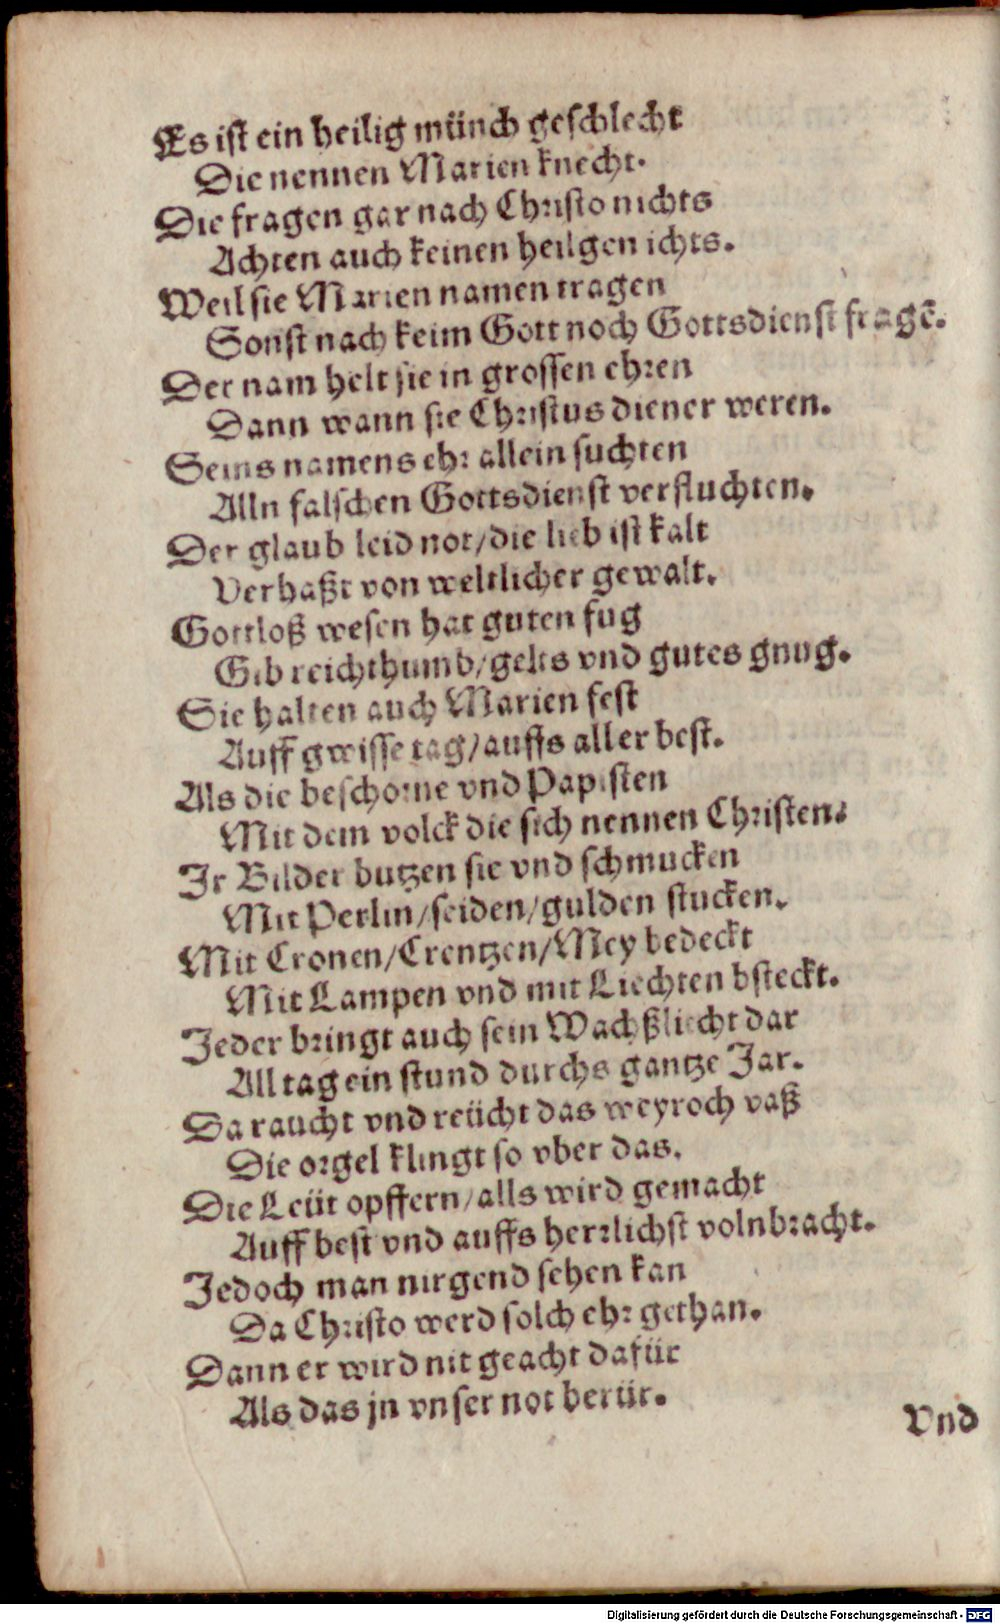 Es ist ein heilig münch geschlecht
Die nennen Marien knecht.
Die fragen gar nach Christo nichts
Achten auch keinen heilgen ichts.
Weil sie Marien namen tragen
Sonst nach keim Gott noch Gottsdienst fragẽ.
Der nam helt sie in grossen ehren
Dann wann sie Christus diener weren.
Seins namens ehr allein suchten
Alln falschen Gottsdienst verfluchten.
Der glaub leid not/die lieb ist kalt
Verhaßt von weltlicher gewalt.
Gottloß wesen hat guten fug
Gib reichthumb/gelts vnd gutes gnug.
Sie halten auch Marien fest
Auff gwisse tag/auffs aller best.
Als die beschorne vnd Papisten
Mit dem volck die sich nennen Christen.
Jr Bilder butzen sie vnd schmucken
Mit Perlin/seiden/gulden stucken.
Mit Cronen/Crentzen/Mey bedeckt
Mit Lampen vnd mit Liechten bsteckt.
Jeder bringt auch sein Wachßliecht dar
All tag ein stund durchs gantze Jar.
Da raucht vnd reücht das weyroch vaß
Die orgel klingt so vber das.
Die Leüt opffern/alls wird gemacht
Auff best vnd auffs herrlichst volnbracht.
Jedoch man nirgend sehen kan
Da Christo werd solch ehr gethan.
Dann er wird nit geacht dafür
Als das jn vnser not berür.
Vnd
Digitalisierung gefördert durch die Deutsche Forschungsgemeinschaft - DFG